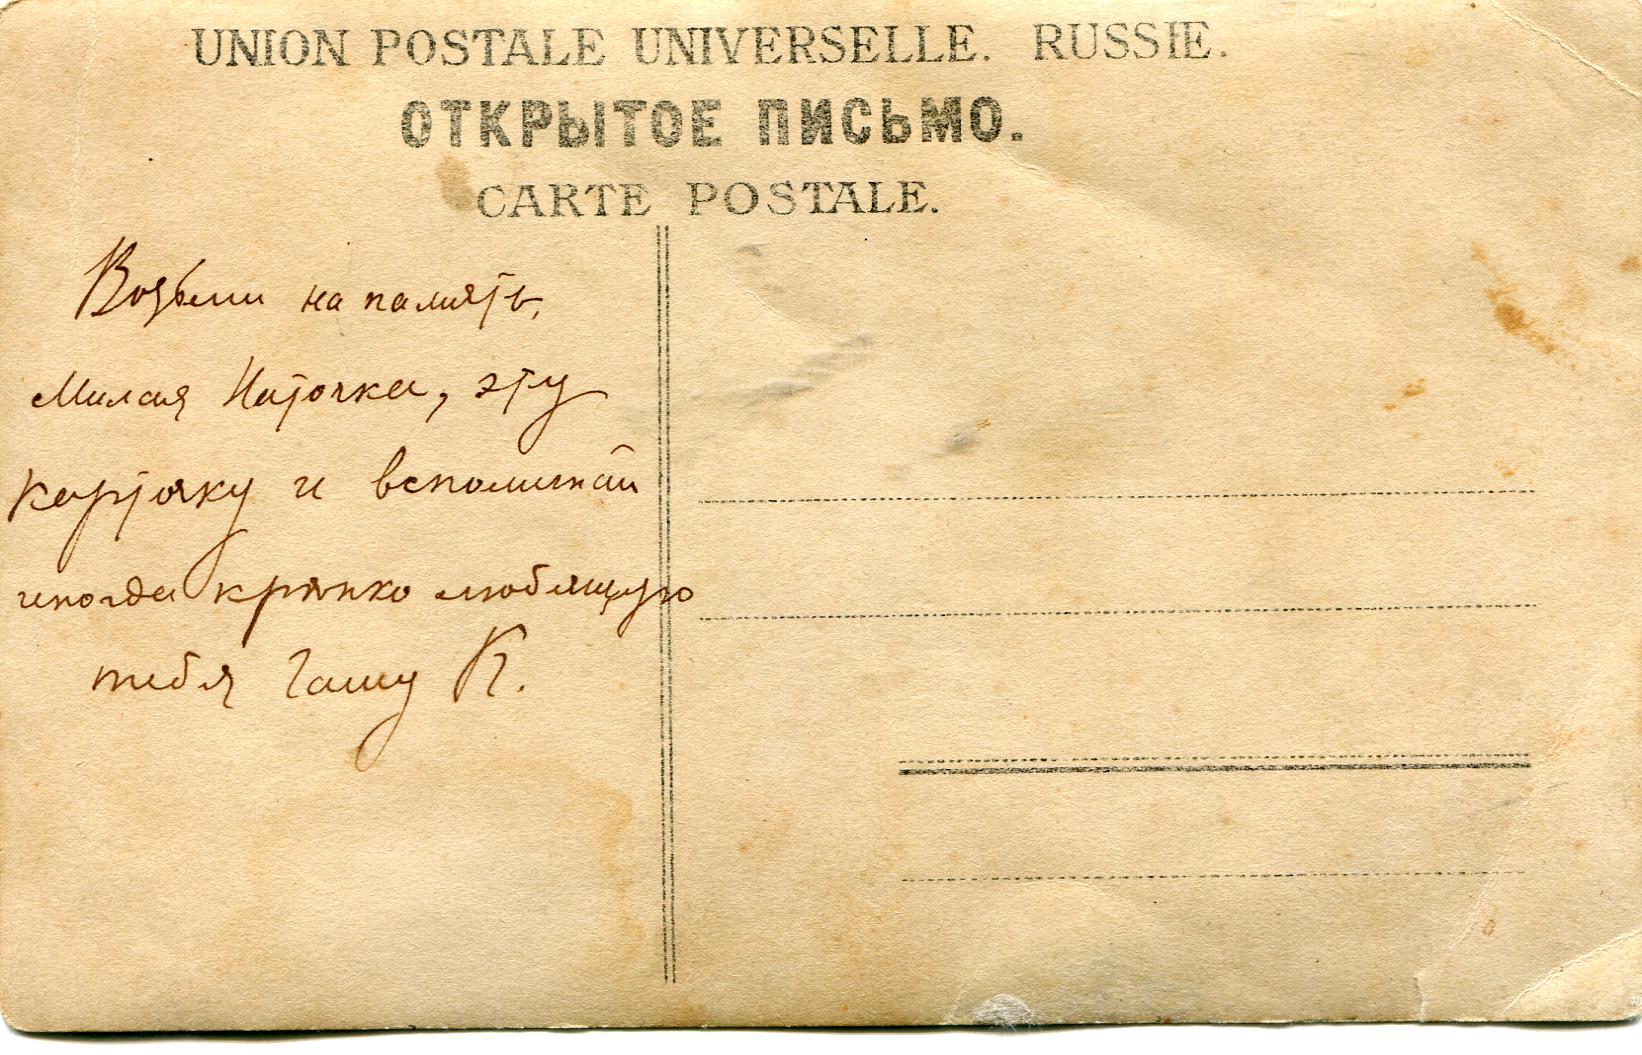 UNION POSTALE UNIVERSELLE. RUSSIE.
ОТКРЫТОЕ ПИСЬМО.
CARTE POSTALE.
Возьми на память,
милая Наточка, эту
карточку и вспоминай
иногда крѣпко любящую
тебя Гашу К.